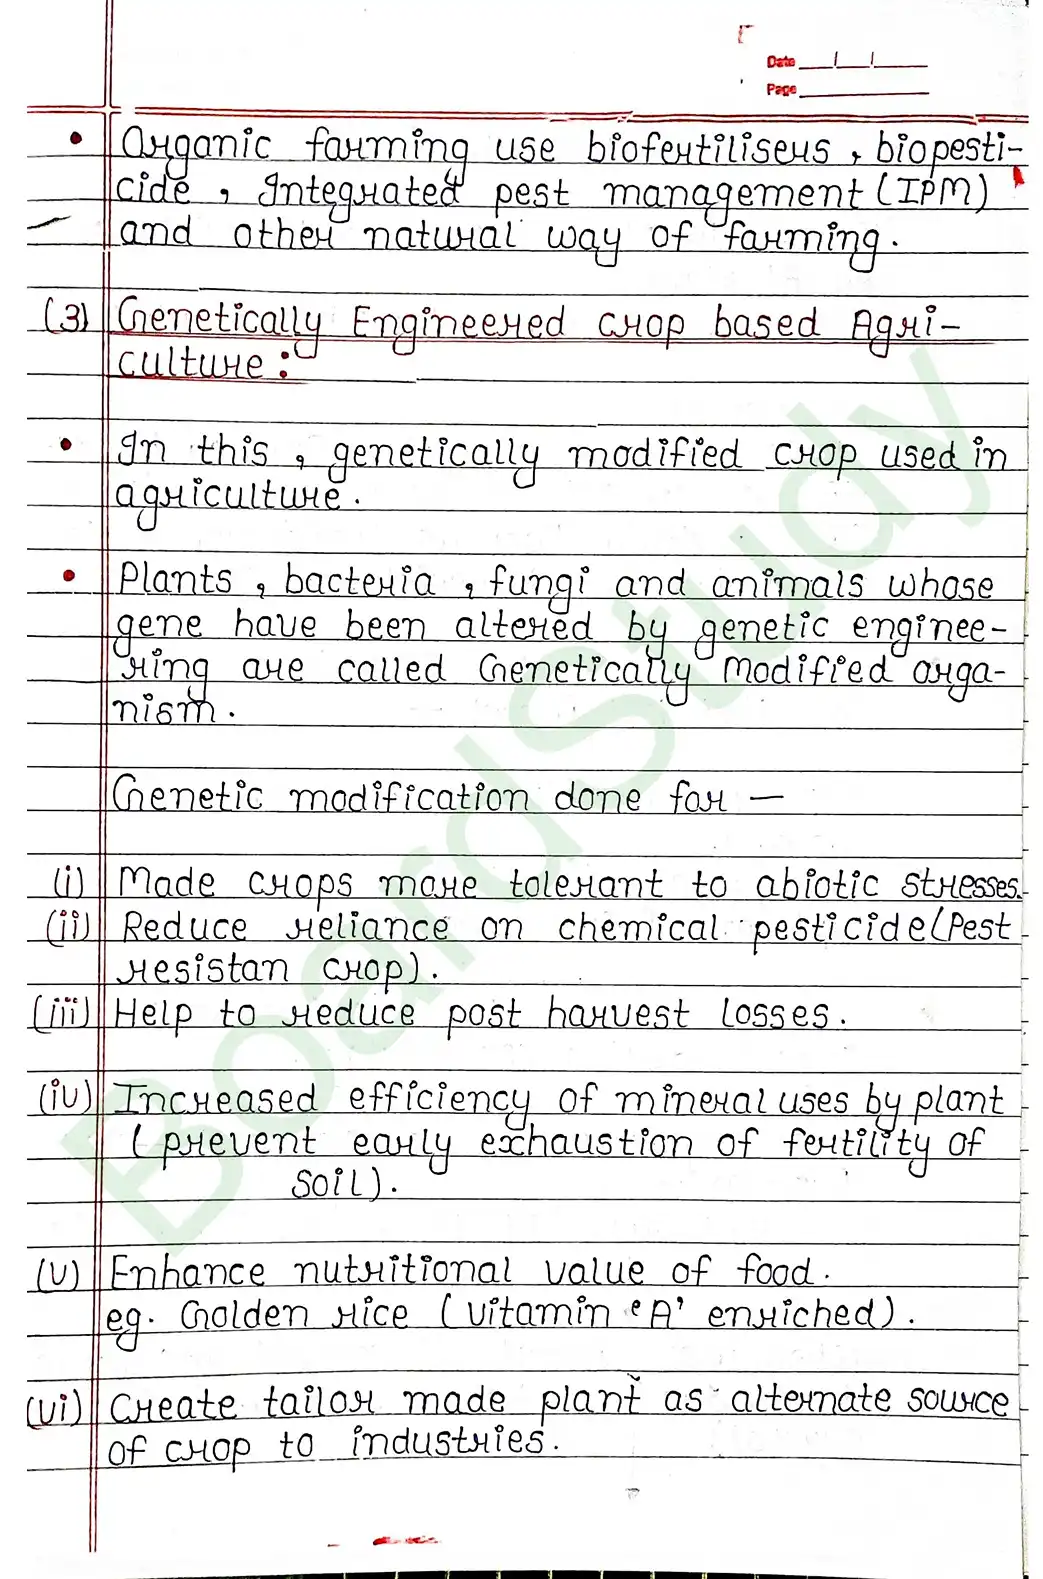 Date __/__/__
Page
• Organic farming use biofertilisers, biopesti-
cide, Integrated pest management (IPM)
and other natural way of farming.
(3) Genetically Engineered crop based Agri-
culture:
• In this, genetically modified crop used in
agriculture.
• Plants, bacteria, fungi and animals whose
gene have been altered by genetic enginee-
ring are called Genetically Modified orga-
nism.
Genetic modification done for —
(i) Made crops more tolerant to abiotic stresses.
(ii) Reduce reliance on chemical pesticide (Pest
resistan crop).
(iii) Help to reduce post harvest losses.
(iv) Increased efficiency of mineral uses by plant
(prevent early exhaustion of fertility of
soil).
(v) Enhance nutritional value of food.
eg. Golden rice (vitamin 'A' enriched).
(vi) Create tailor made plant as alternate source
of crop to industries.
BoardStudy